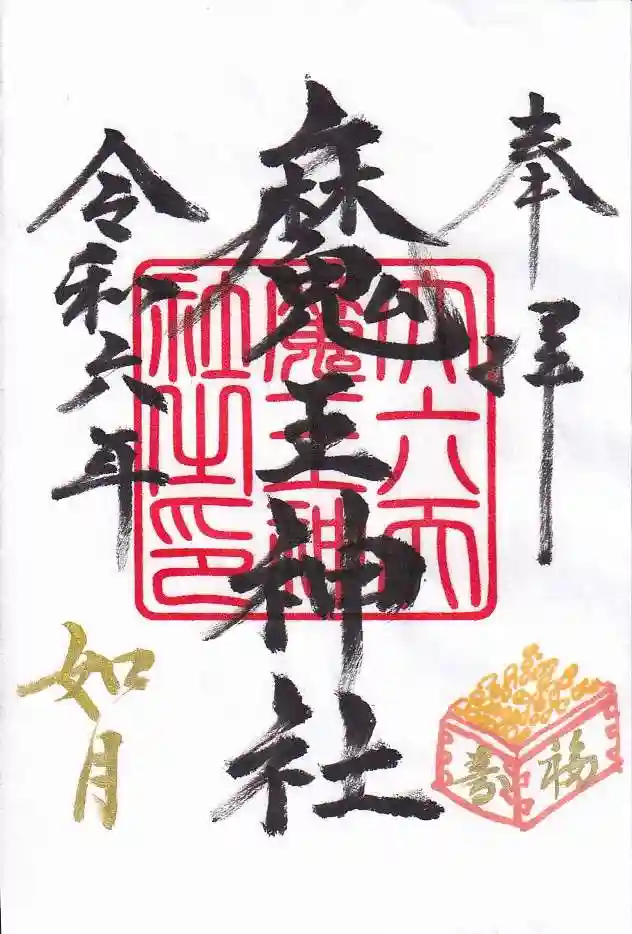 奉拝
魔王神社
令和六年
如月
第六天
魔王神
社之印
福
寿